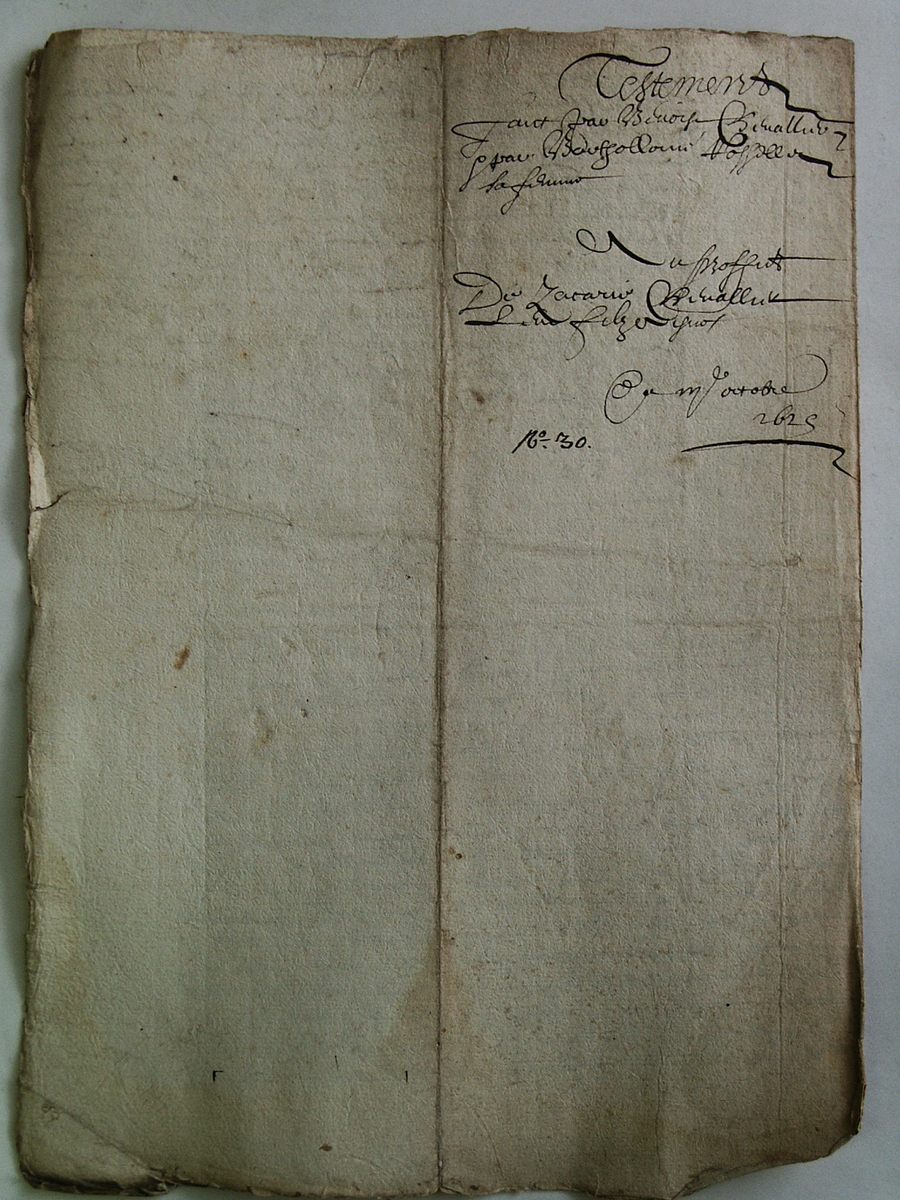 Testement
faict par Benoist Chevallier
& par Berthollomie
sa femme
Au proffict
De Zacarie Chevallier
Leur filz
Ce octobre
1625
No. 30.